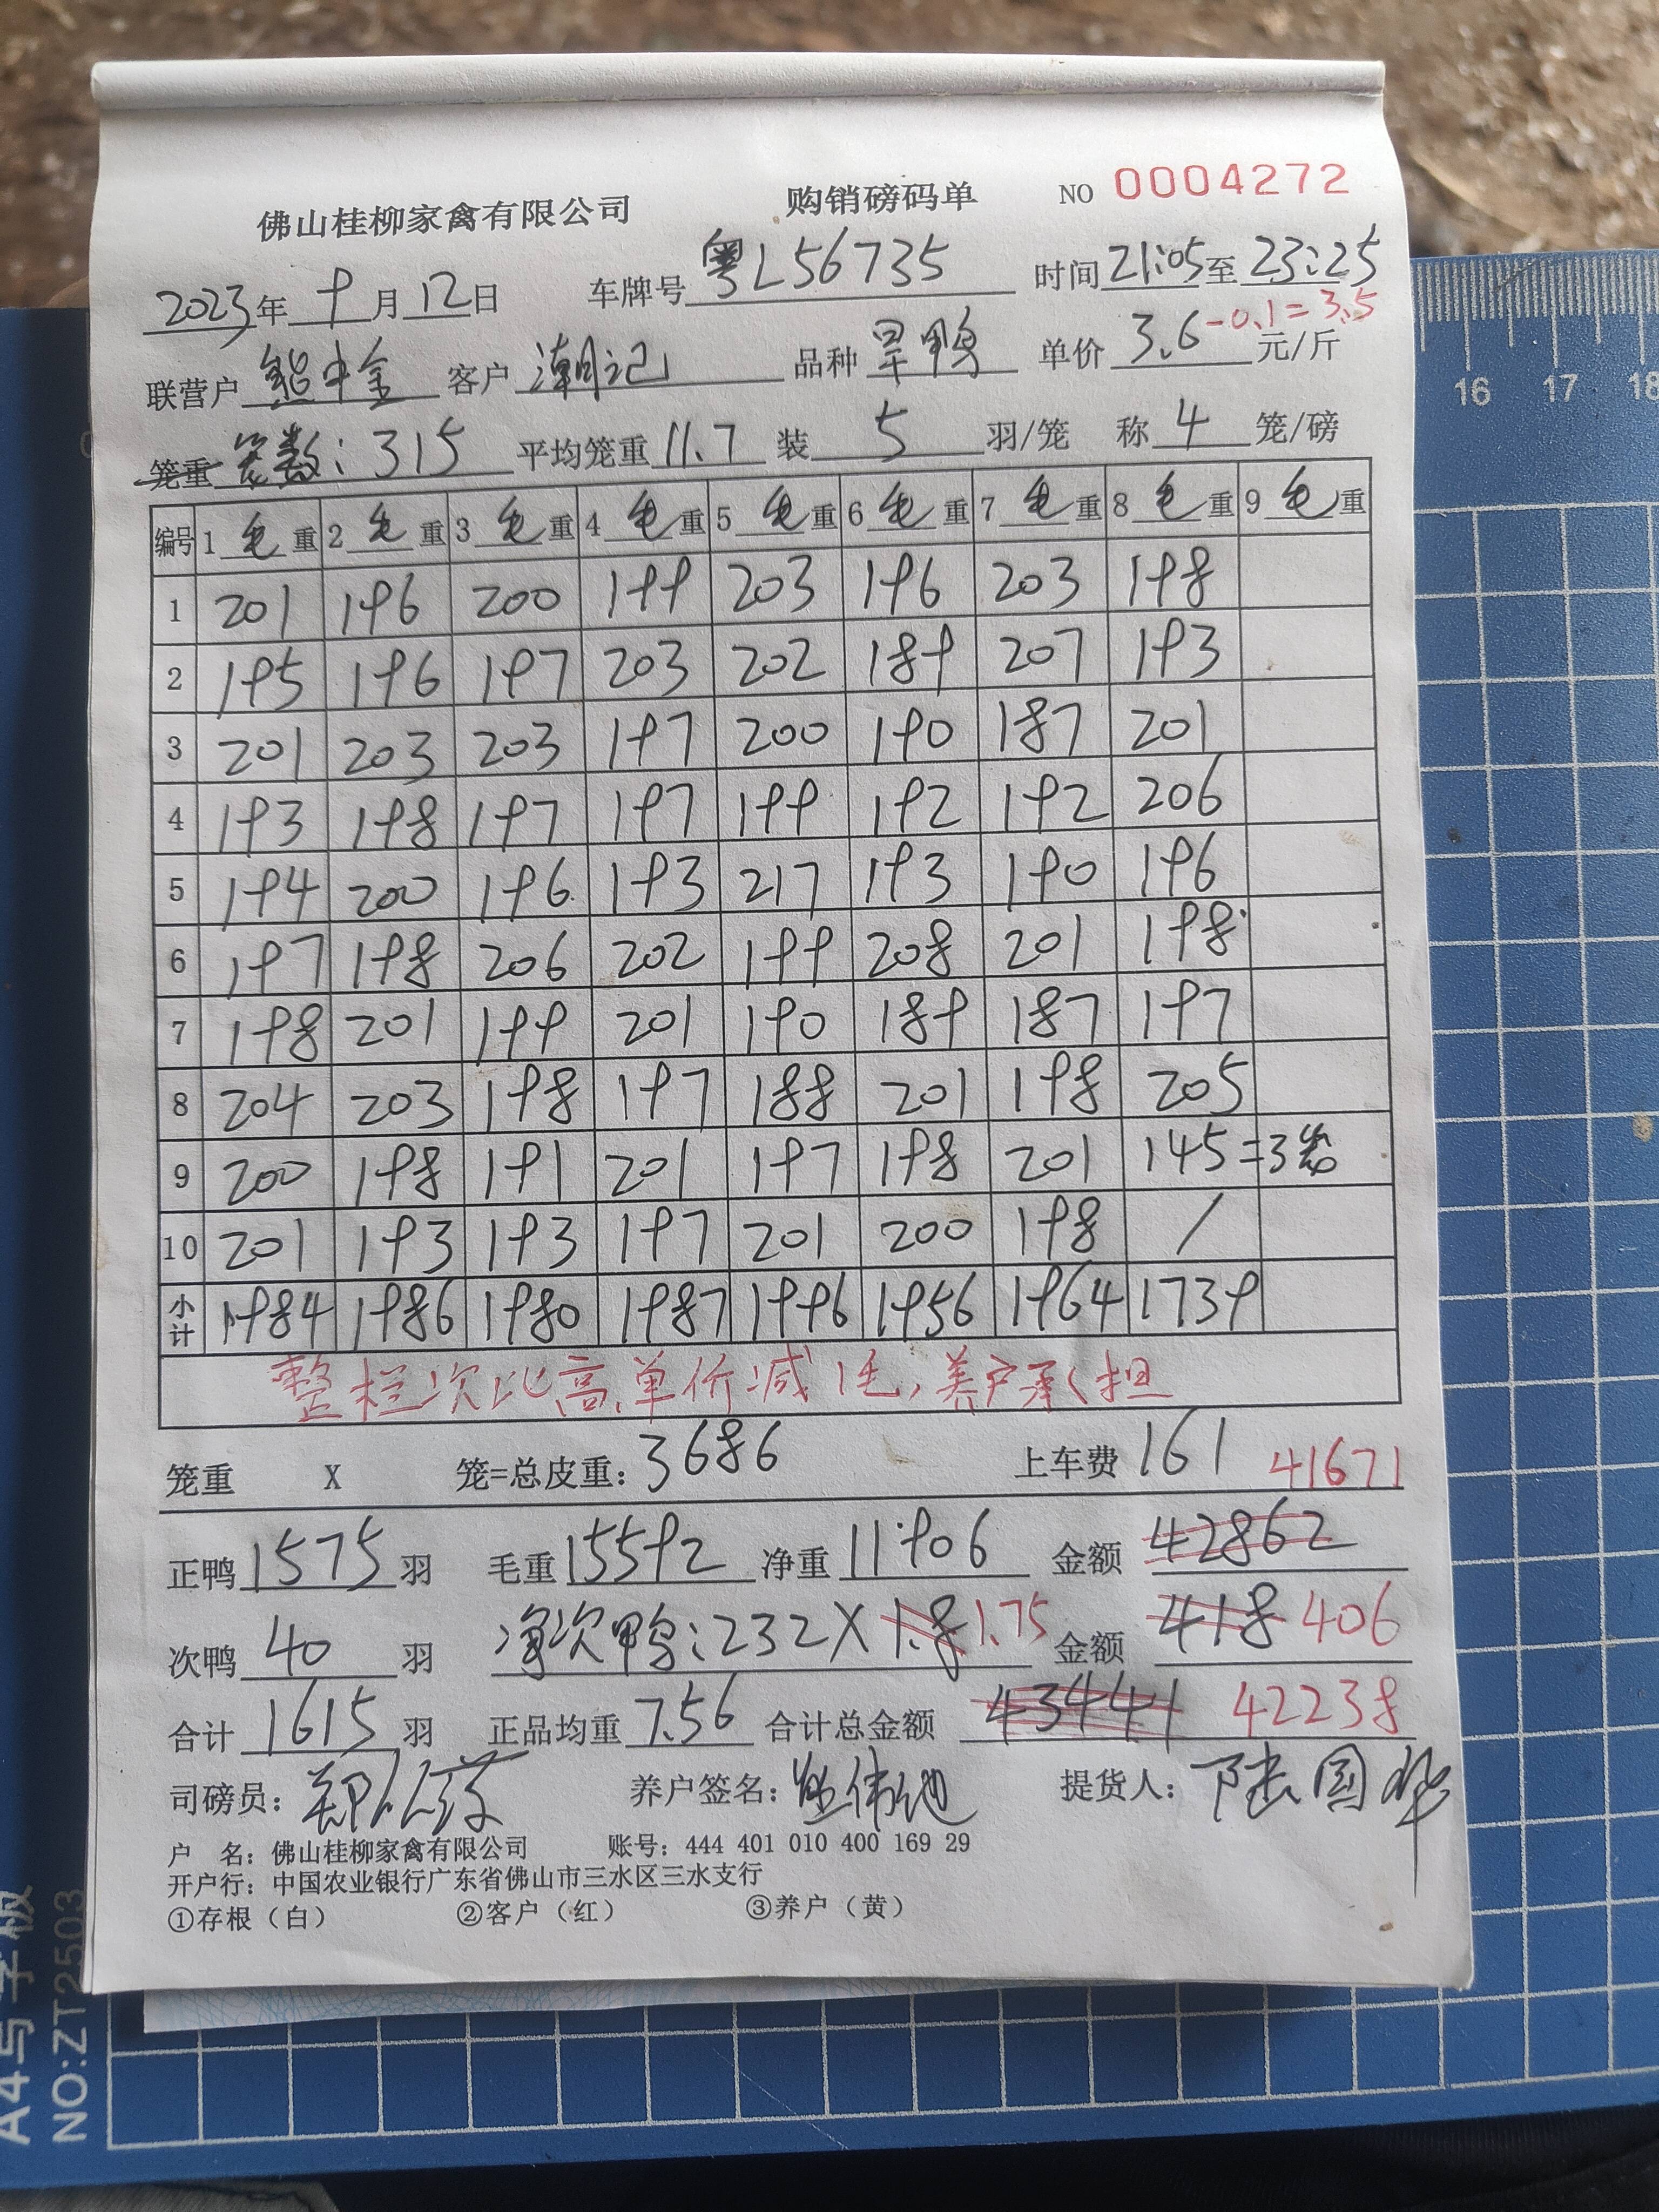 佛山桂柳家禽有限公司 购销磅码单 NO 0004272
2023年 9月12日 车牌号 粤L56735 时间21:05至23:25
联营户 熊中金 客户 潮记 品种 旱鸭 单价 3.6-0.1=3.5 元/斤
笼重 笼数:315 平均笼重 11.7 装 5 羽/笼 称 4 笼/磅
编号 1毛重 2毛重 3毛重 4毛重 5毛重 6毛重 7毛重 8毛重 9毛重
1 201 196 200 199 203 196 203 198
2 195 196 197 203 202 189 207 193
3 201 203 203 197 200 190 187 201
4 193 198 197 197 199 192 192 206
5 194 200 196 193 217 193 190 196
6 197 198 206 202 199 208 201 198
7 198 201 199 201 190 189 187 197
8 204 203 198 197 188 201 198 205
9 200 198 191 201 197 198 201 145=3笼
10 201 193 193 197 201 200 198 /
小计 1984 1986 1980 1987 1996 1956 1964 1739
整栏次比高,单价减1毛,养户承担
笼重 X 笼=总皮重:3686 上车费 161 41671
正鸭 1575 羽 毛重 15592 净重 11906 金额 42862
次鸭 40 羽 净次鸭:232X1.8 1.75 金额 418 406
合计 1615 羽 正品均重 7.56 合计总金额 43441 42238
司磅员: 养户签名: 提货人:陆国华
户 名:佛山桂柳家禽有限公司 账号:444 401 010 400 169 29
开户行:中国农业银行广东省佛山市三水区三水支行
①存根(白) ②客户(红) ③养户(黄)
16 17 18
A4写字板
NO:ZT2503